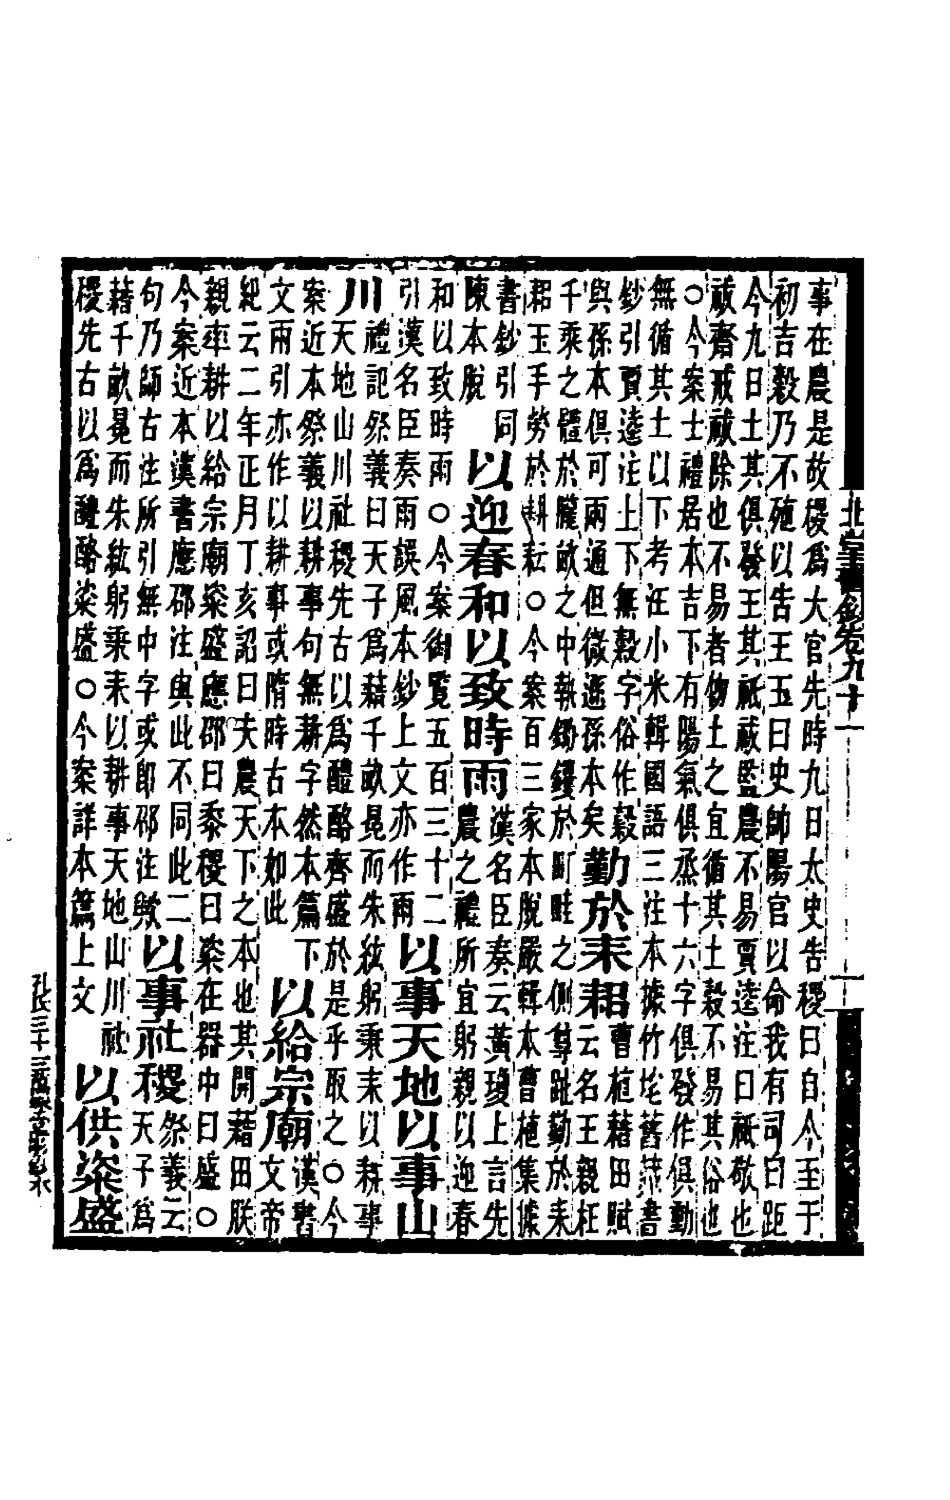 事在農是故稷爲大官先時九日太史告稷曰自今至于
初吉穀乃不殖以告王王曰史帥陽官以命我有司曰距
今九日土其俱發王其祗祓監農不易賈逵注曰祗敬也
祓齋戒祓除也不易者物土之宜循其土穀不易其俗也
○今案士禮居本吉下有陽氣俱烝十六字俱發作俱動
無循其土以下考汪小米輯國語三注本據竹垞舊藏書
鈔引賈逵注上下無穀字俗作穀勤於耒耜曹植藉田賦
與孫本俱可兩通但微遜孫本矣云名王親枉
千乘之體於隴畝之中執鋤钁於町畦之側尊趾勤於耒
耜玉手勞於耕耘○今案百三家本脫嚴輯本曹植集據
書鈔引同以迎春和以致時雨漢名臣奏云黃瓊上言先
陳本脫農之禮所宜躬親以迎春
和以致時雨○今案御覽五百三十二以事天地以事山
引漢名臣奏雨誤風本鈔上文亦作雨
川禮記祭義曰天子爲藉千畝冕而朱紘躬秉耒以耕事
天地山川社稷先古以爲醴酪齊盛於是乎取之○今
案近本祭義以耕事句無耕字然本篇下以給宗廟漢書
文兩引亦作以耕事或隋時古本如此文帝
紀云二年正月丁亥詔曰夫農天下之本也其開藉田朕
親率耕以給宗廟粢盛應邵曰黍稷曰粢在器中曰盛○
今案近本漢書應邵注與此不同此二以事社稷祭義云
句乃師古注所引無中字或卽邵注歟天子爲
藉千畝冕而朱紘躬秉耒以耕事天地山川社以供粢盛
稷先古以爲醴酪粢盛○今案詳本篇上文
北堂書鈔卷九十一